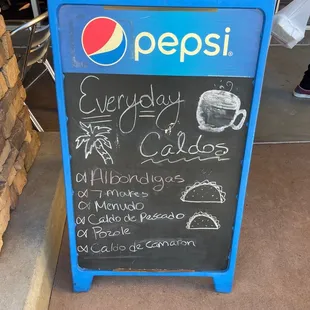 pepsi
Everyday
Caldos
Albondigas
7 mares
Menudo
Caldo de Pescado
Pozole
Caldo de camaron